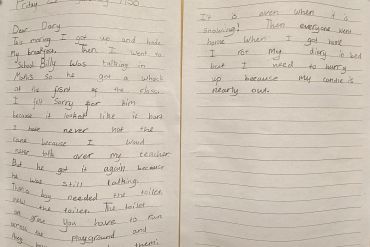 Friday
Dear Dary
This morning I got up and hade
my breakfast. Then I went to
school. Billy was talking in
Maths so he got a whack
at the front of the class.
I felt sorry for him
because it looked like it hurt
I have never not the
cane because I woud
never talk over my teacher
But he got it again because
he was still talking.
Then a boy needed the toilet
now the toilet. The toilet
so you have to run
across the playground and
they
It is even when it is
snowing! Then everyone went
home When I got home
I rot my diary in bed
but I need to hurry
up because my candle is
nearly out.